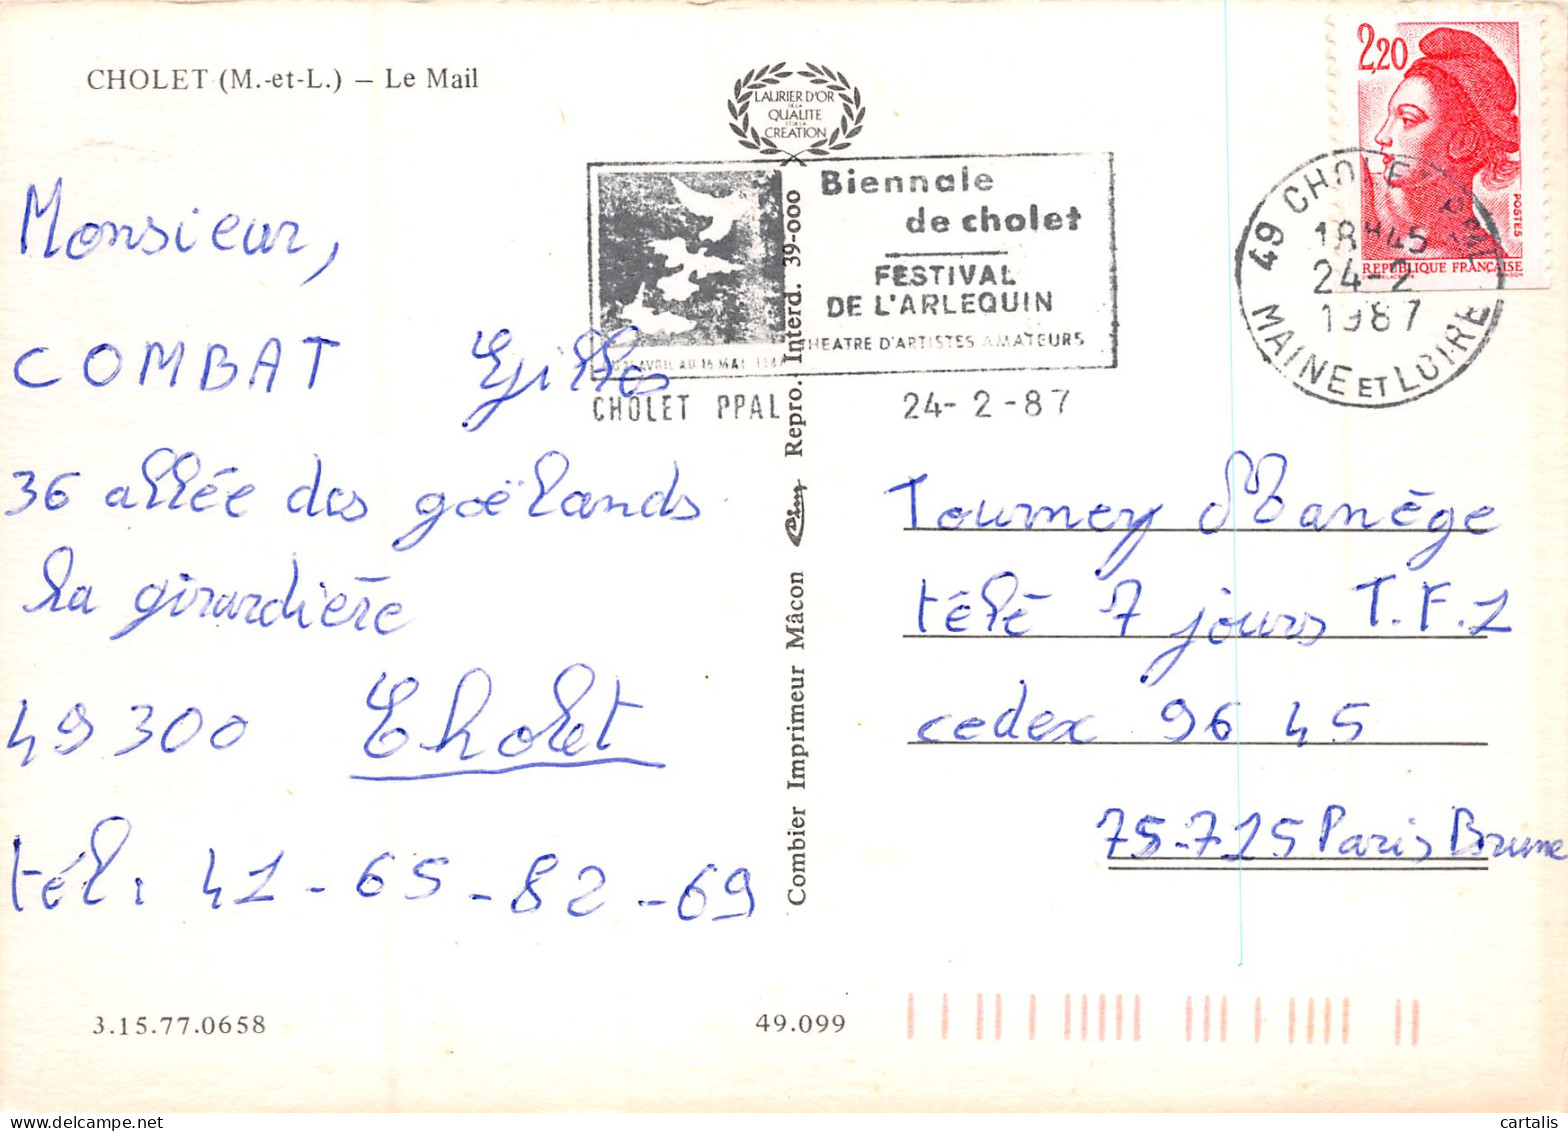 CHOLET (M.-et-L.) — Le Mail
LAURIER D'OR
DE LA
QUALITE
ET DE LA
CREATION
2,20
POSTES
REPUBLIQUE FRANÇAISE
Biennale
de cholet
FESTIVAL
DE L'ARLEQUIN
THEATRE D'ARTISTES AMATEURS
AVRIL AU 16 MAI 1987
CHOLET PPAL
24-2-87
49 CHOLET PPAL
18H45
24-2
1987
MAINE ET LOIRE
Monsieur,
COMBAT Gilles
36 allée des goëlands
la girardière
49300 Cholet
tél: 41-65-82-69
Combier Imprimeur Mâcon Repro. Interd. 39-000
Tournez Manège
télé 7 jours T.F.1
cedex 96 45
75-715 Paris Brune
3.15.77.0658
49.099
cartalis